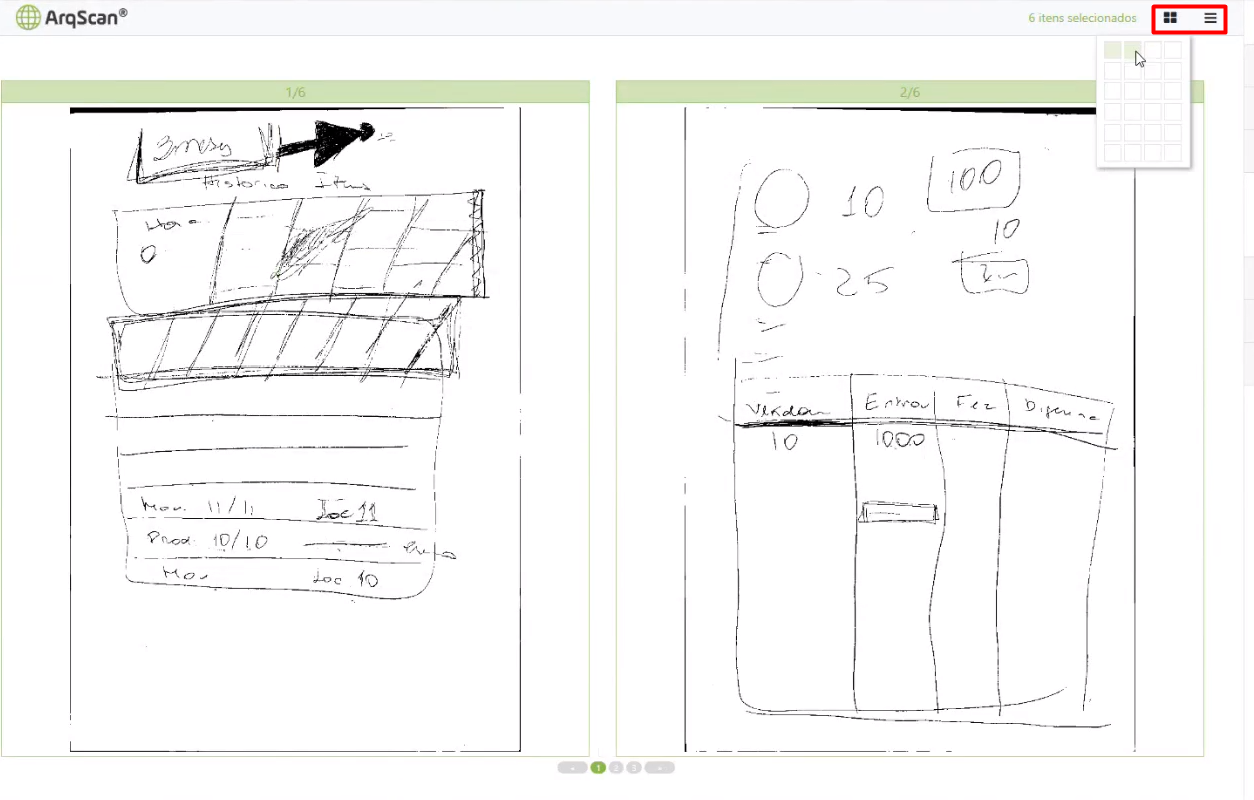 ArqScan®
6 itens selecionados
1/6
2/6
3 mesy
Historico Itens
Hora
0
Mov. 11/11 Loc 11
Prod. 10/10
Mov Loc 10
10
100
10
25
Vendou Entrou Fez Diferença
10 1000
1 2 3